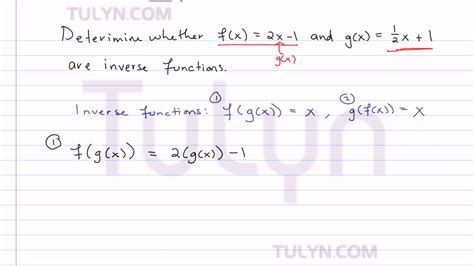 TULYN.COM
Determine whether f(x) = 2x-1 and g(x) = 1/2 x + 1
g(x)
are inverse functions.
Inverse functions: ① f(g(x)) = x , ② g(f(x)) = x
① f(g(x)) = 2(g(x)) - 1
TULYN
TULYN.COM